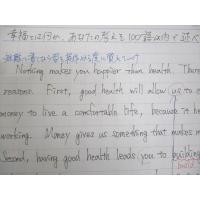 幸福とは何か、あなたの考えを100語以内で述べ
Nothing makes you happier than health. There
reasons. First, good health will allow us to e
money to live a comfortable life, because it he
working. Money gives us something that makes m
Second, having good health leads you to building